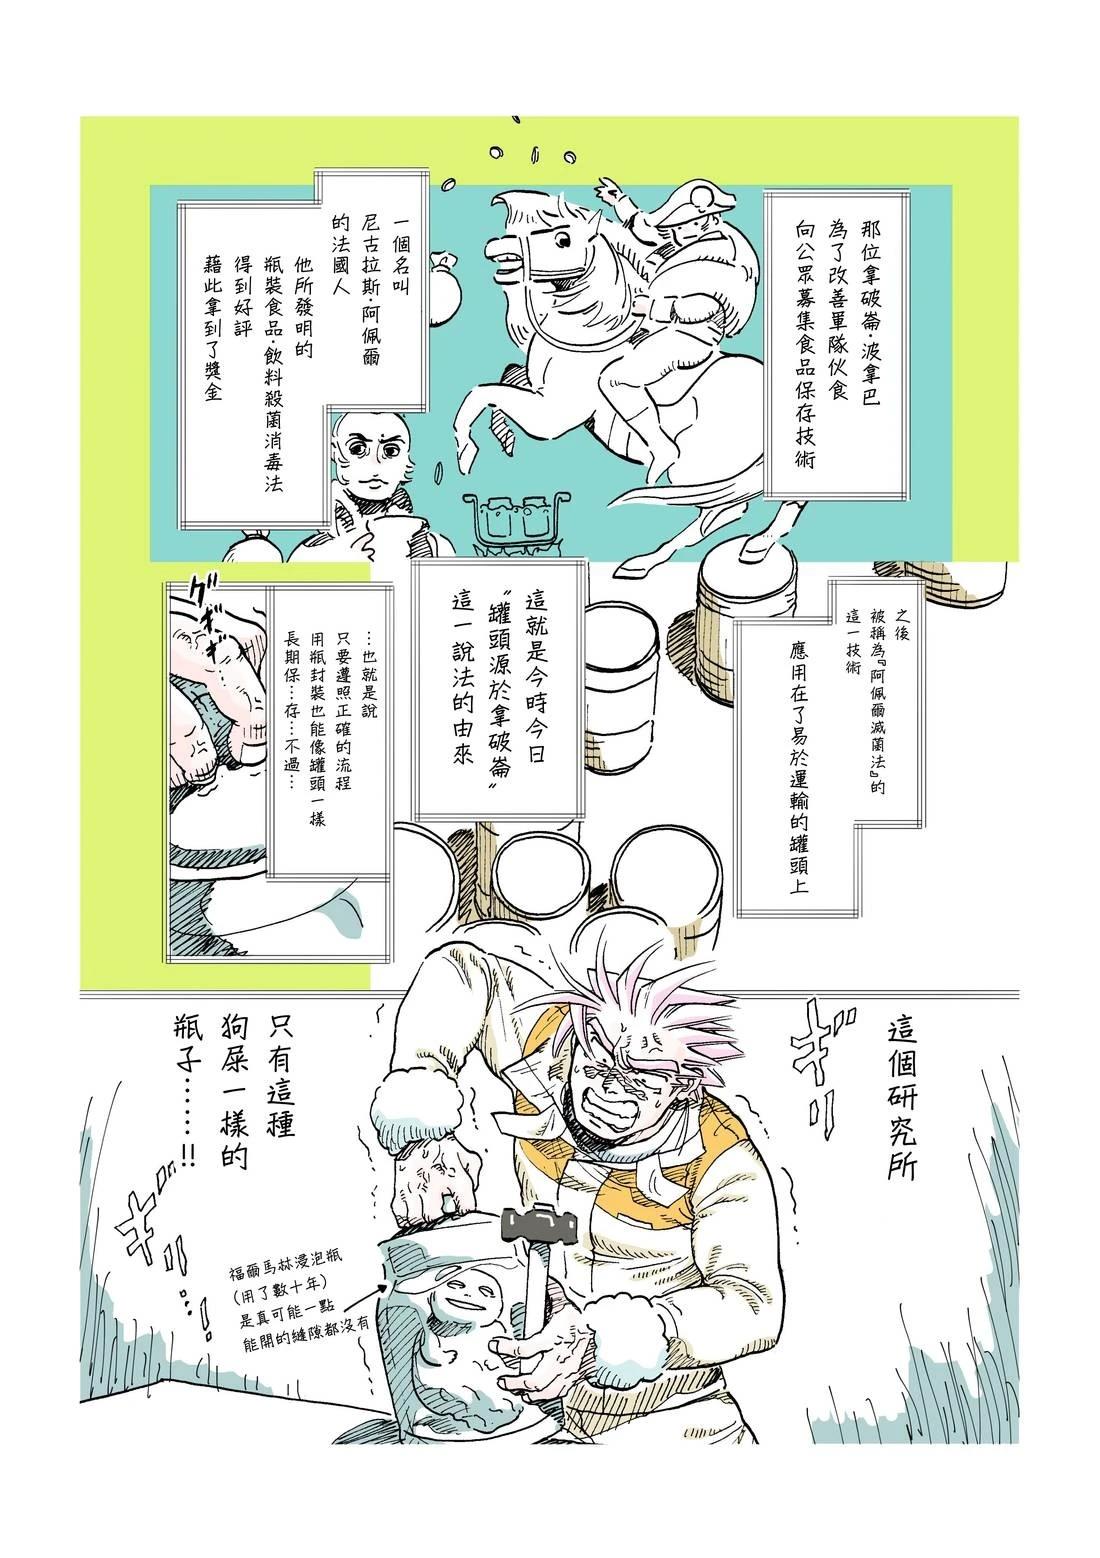 那位拿破崙·波拿巴
為了改善軍隊伙食
向公眾募集食品保存技術
一個名叫
尼古拉斯·阿佩爾
的法國人
他所發明的
瓶裝食品·飲料殺菌消毒法
得到好評
藉此拿到了獎金
之後
被稱為『阿佩爾滅菌法』的
這一技術
應用在了易於運輸的罐頭上
這就是今時今日
〝罐頭源於拿破崙〞
這一說法的由來
…也就是說
只要遵照正確的流程
用瓶封裝也能像罐頭一樣
長期保…存…不過…
グギギ
這個研究所
ギリ
只有這種
狗屎一樣的
瓶子……!!
ギリ…!
福爾馬林浸泡瓶
(用了數十年)
是真可能一點
能開的縫隙都沒有